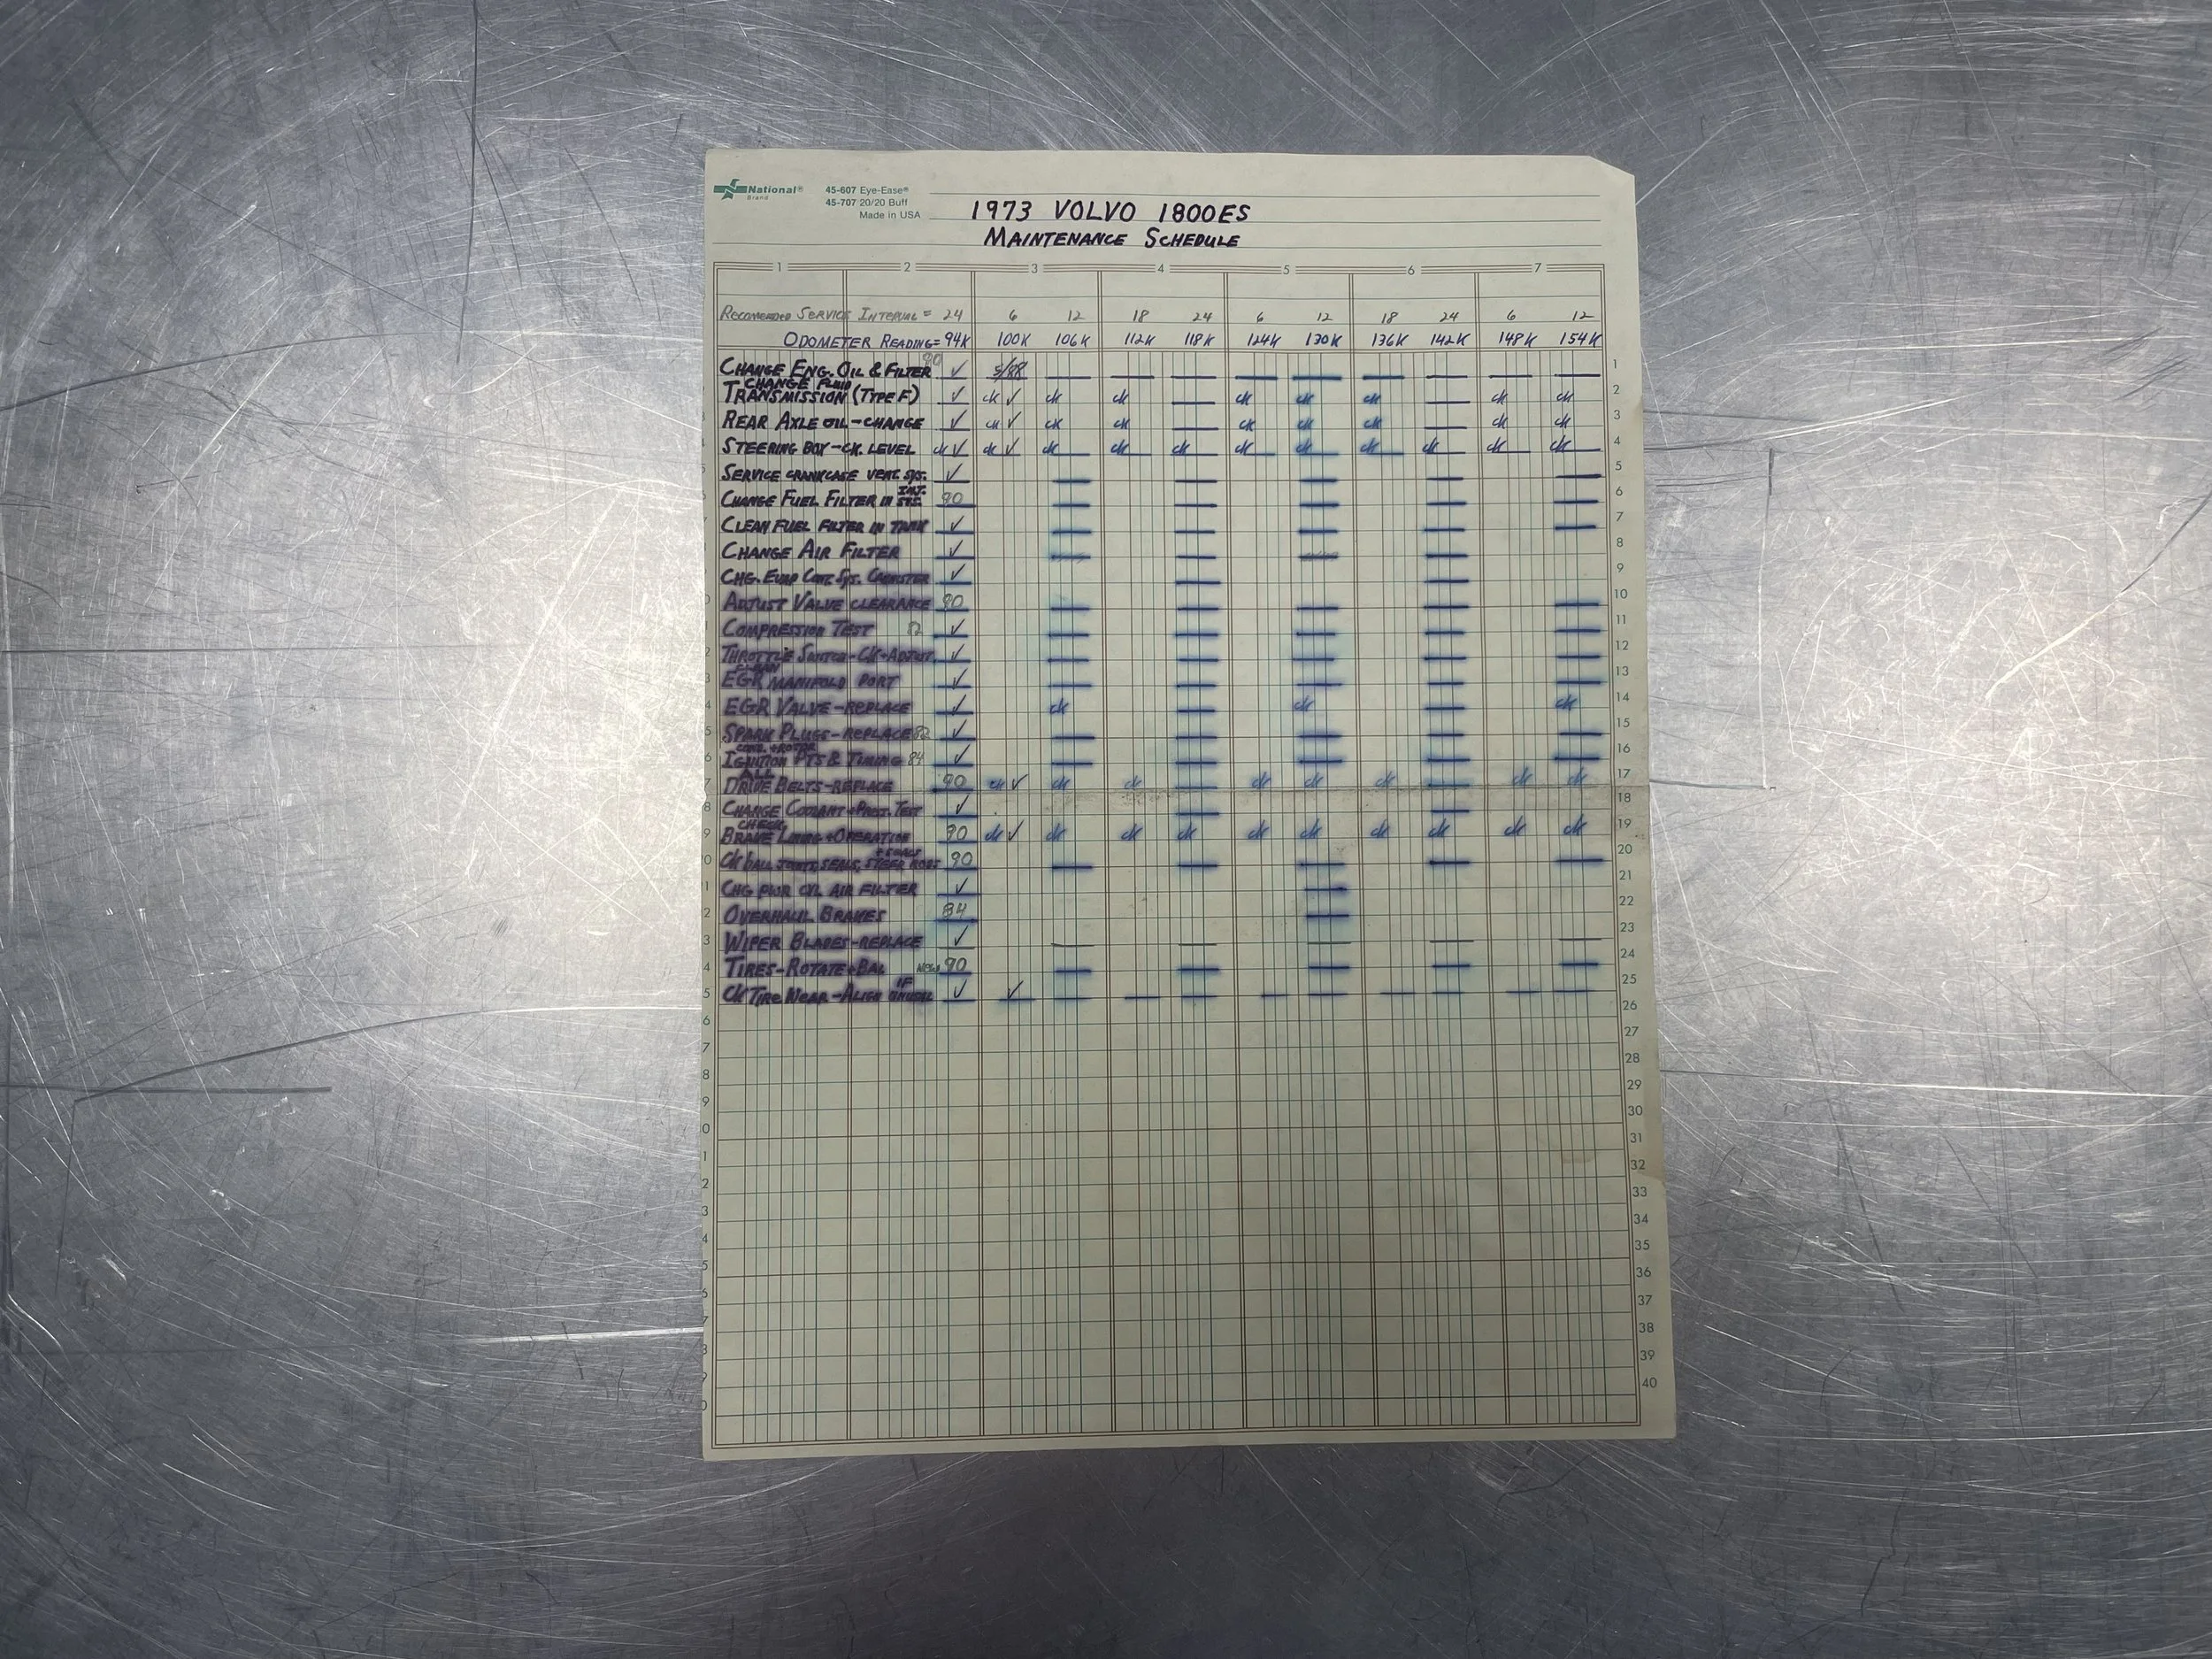 National® 45-607 Eye-Ease®
Brand 45-707 20/20 Buff
Made in USA
1973 VOLVO 1800ES
MAINTENANCE SCHEDULE
1 2 3 4 5 6 7
RECOMENDED SERVICE INTERVAL = 24 6 12 18 24 6 12 18 24 6 12
ODOMETER READING= 94K 100K 106K 112K 118K 124K 130K 136K 142K 148K 154K
CHANGE ENG. OIL & FILTER 90 ✓ 5/88 1
CHANGE FLUID
TRANSMISSION (TYPE F) ✓ ck ✓ ck ck ck ck ck ck ck 2
REAR AXLE OIL-CHANGE ✓ ck ✓ ck ck ck ck ck ck ck 3
STEERING BOX-CK. LEVEL ck ✓ ck ✓ ck ck ck ck ck ck ck ck ck 4
SERVICE CRANKCASE VENT. SYS. ✓ 5
CHANGE FUEL FILTER IN INJ. SYS. 90 6
CLEAN FUEL FILTER IN TANK ✓ 7
CHANGE AIR FILTER ✓ 8
CHG. EVAP CONT. SYS. CANISTER ✓ 9
ADJUST VALVE CLEARANCE 90 10
COMPRESSION TEST ✓ 11
THROTTLE SWITCH-CK+ADJUST ✓ 12
CLEAN
EGR MANIFOLD PORT ✓ 13
EGR VALVE-REPLACE ✓ ck ck ck 14
SPARK PLUGS-REPLACE 82 ✓ 15
COND. + ROTOR
IGNITION PTS & TIMING 84 ✓ 16
ALL
DRIVE BELTS-REPLACE 90 ck ✓ ck ck ck ck ck ck ck 17
CHANGE COOLANT + PROT. TEST ✓ 18
CHECK
BRAKE LINING+OPERATION 90 ck ✓ ck ck ck ck ck ck ck ck ck 19
+ SEALS
CK BALL JOINTS, SEALS, STEER RODS 90 20
CHG PWR CYL AIR FILTER ✓ 21
OVERHAUL BRAKES 84 22
WIPER BLADES-REPLACE ✓ 23
TIRES-ROTATE+BAL NEW 90 24
CK TIRE WEAR-ALIGN IF UNUSUAL ✓ ✓ 25
26
27
28
29
30
31
32
33
34
35
36
37
38
39
40